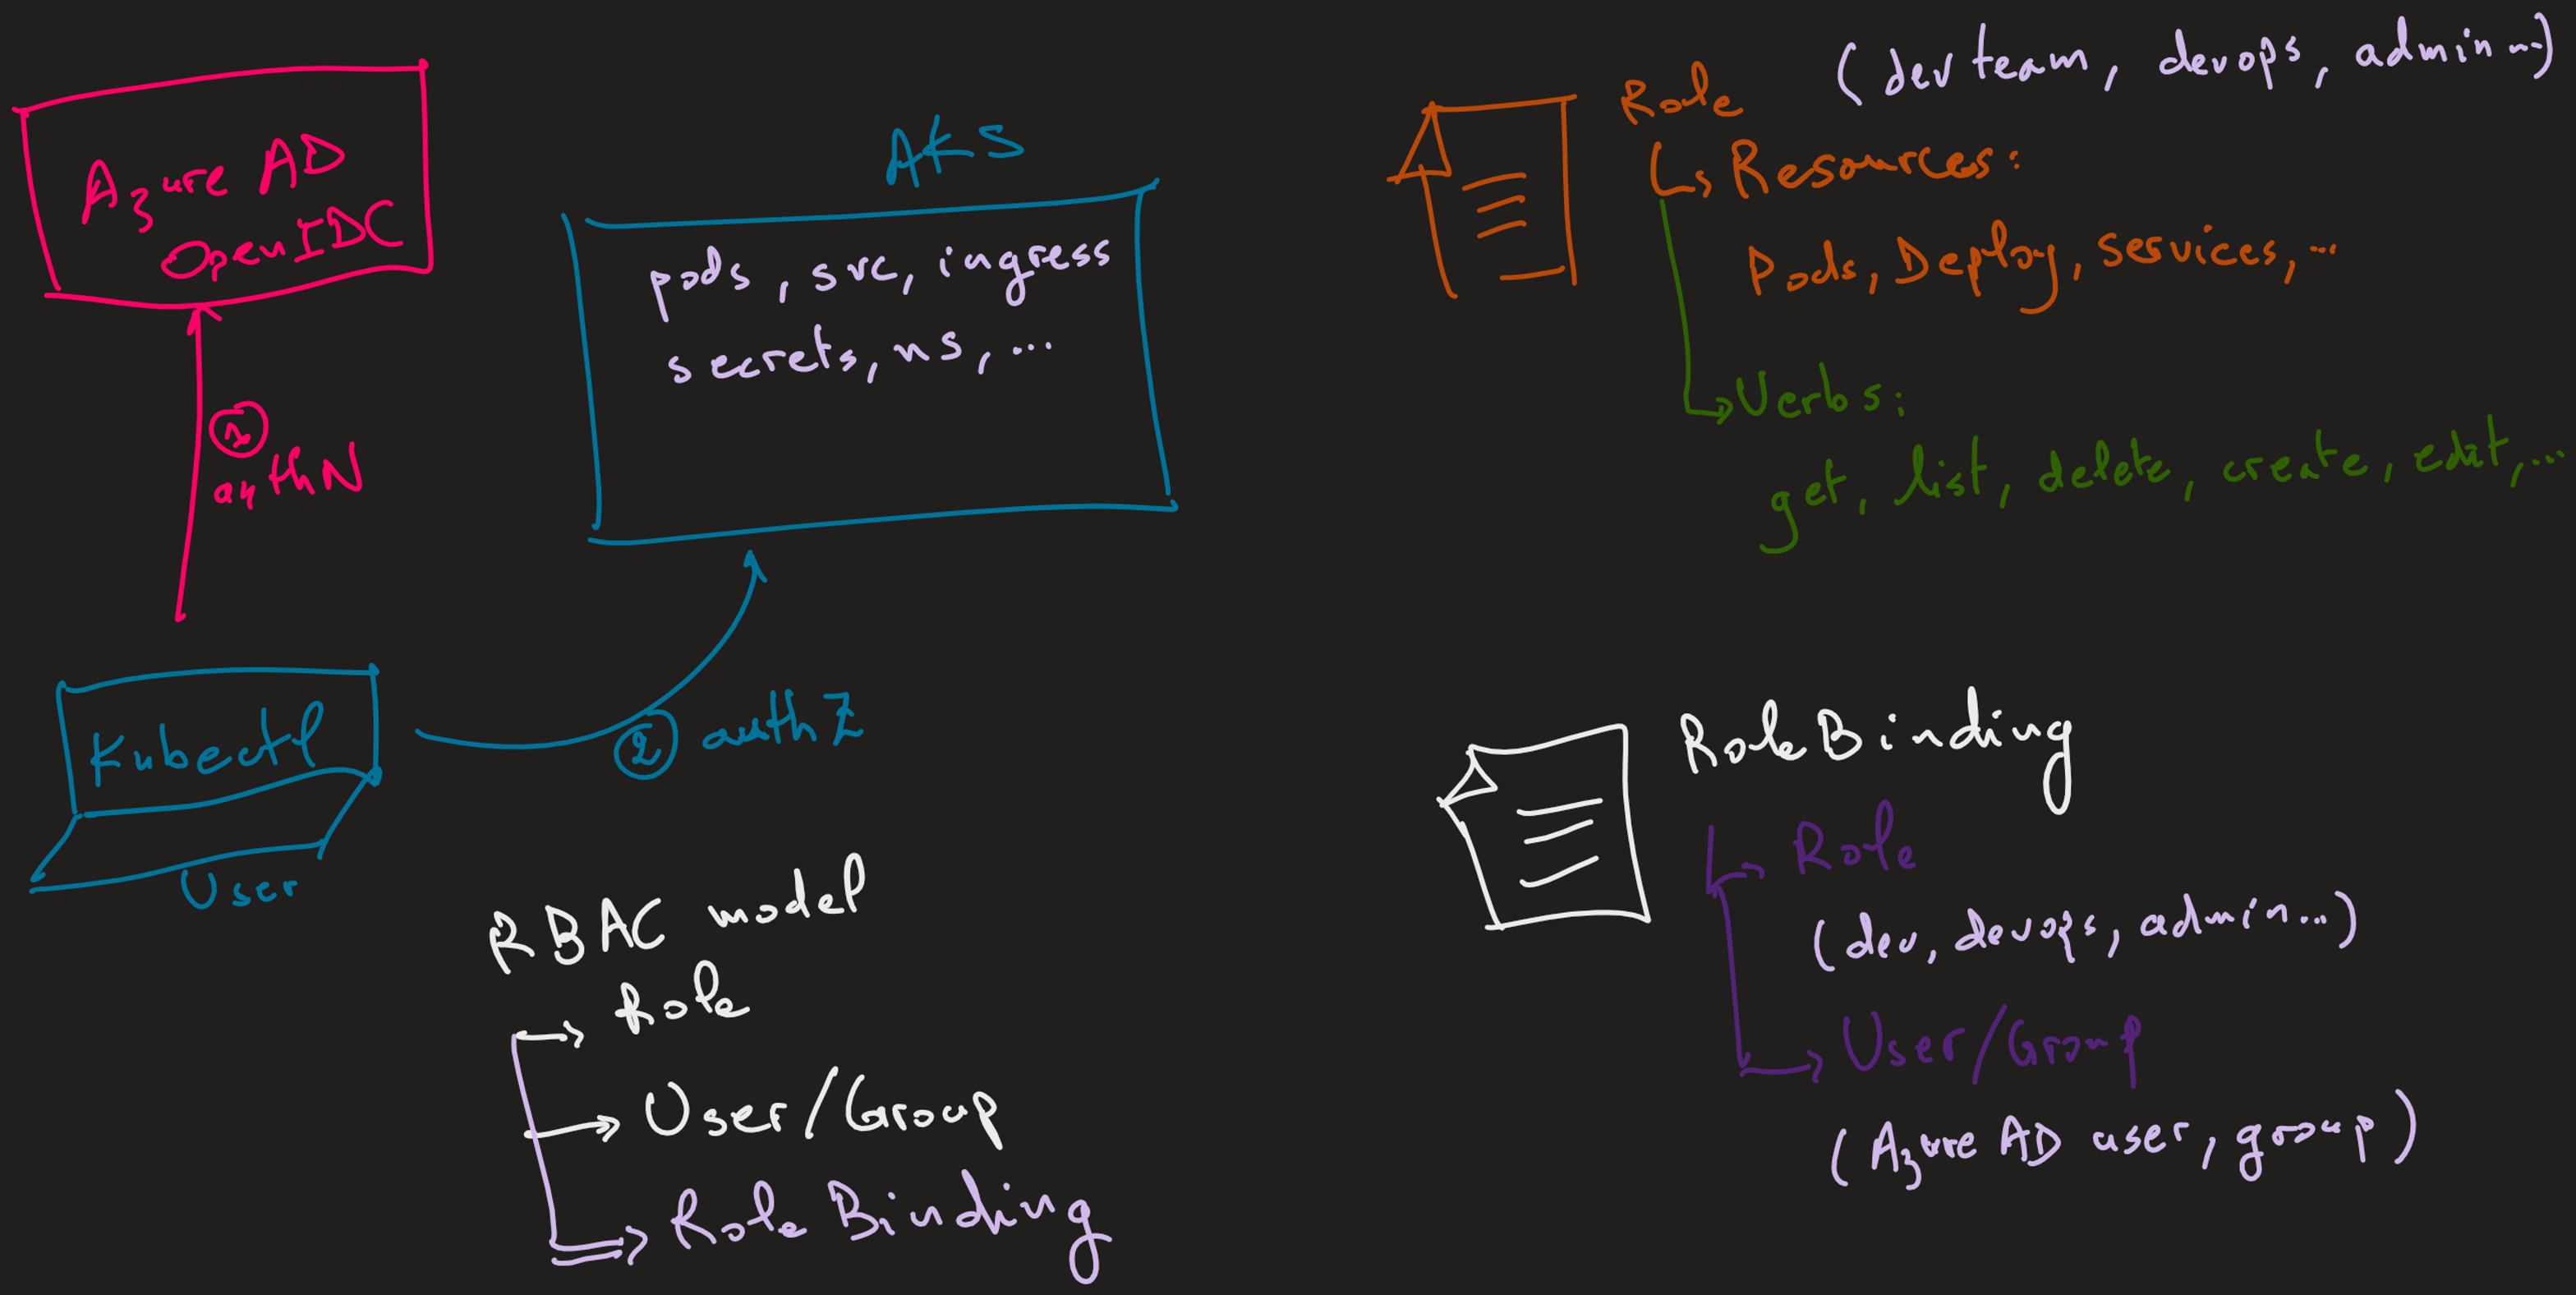 Azure AD
OpenIDC
① authN
Kubectl
User
AKS
pods, svc, ingress
secrets, ns, ...
② authZ
RBAC model
Role
User/Group
Role Binding
Role (dev team, devops, admin...)
Resources:
Pods, Deploy, services, ...
Verbs:
get, list, delete, create, edit, ...
RoleBinding
Role
(dev, devops, admin...)
User/Group
(Azure AD user, group)